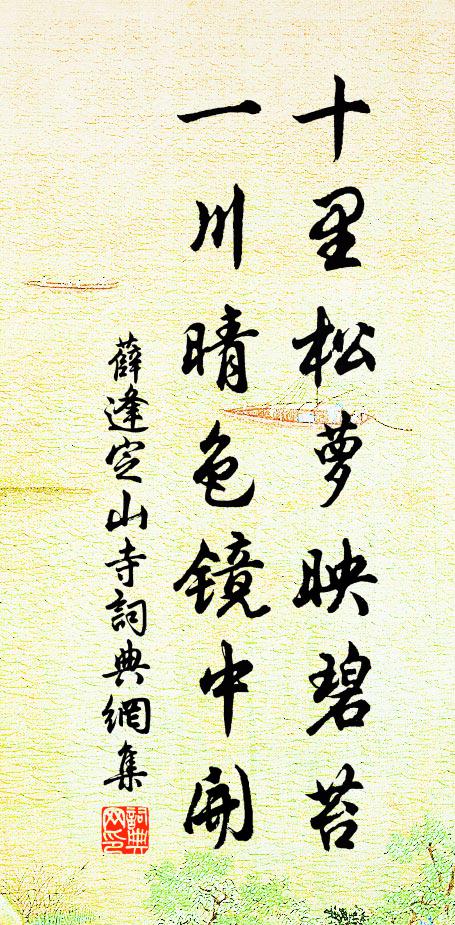 十里松萝映碧苔
一川晴色镜中开
薛逢定山寺詞典網集
詞典網印